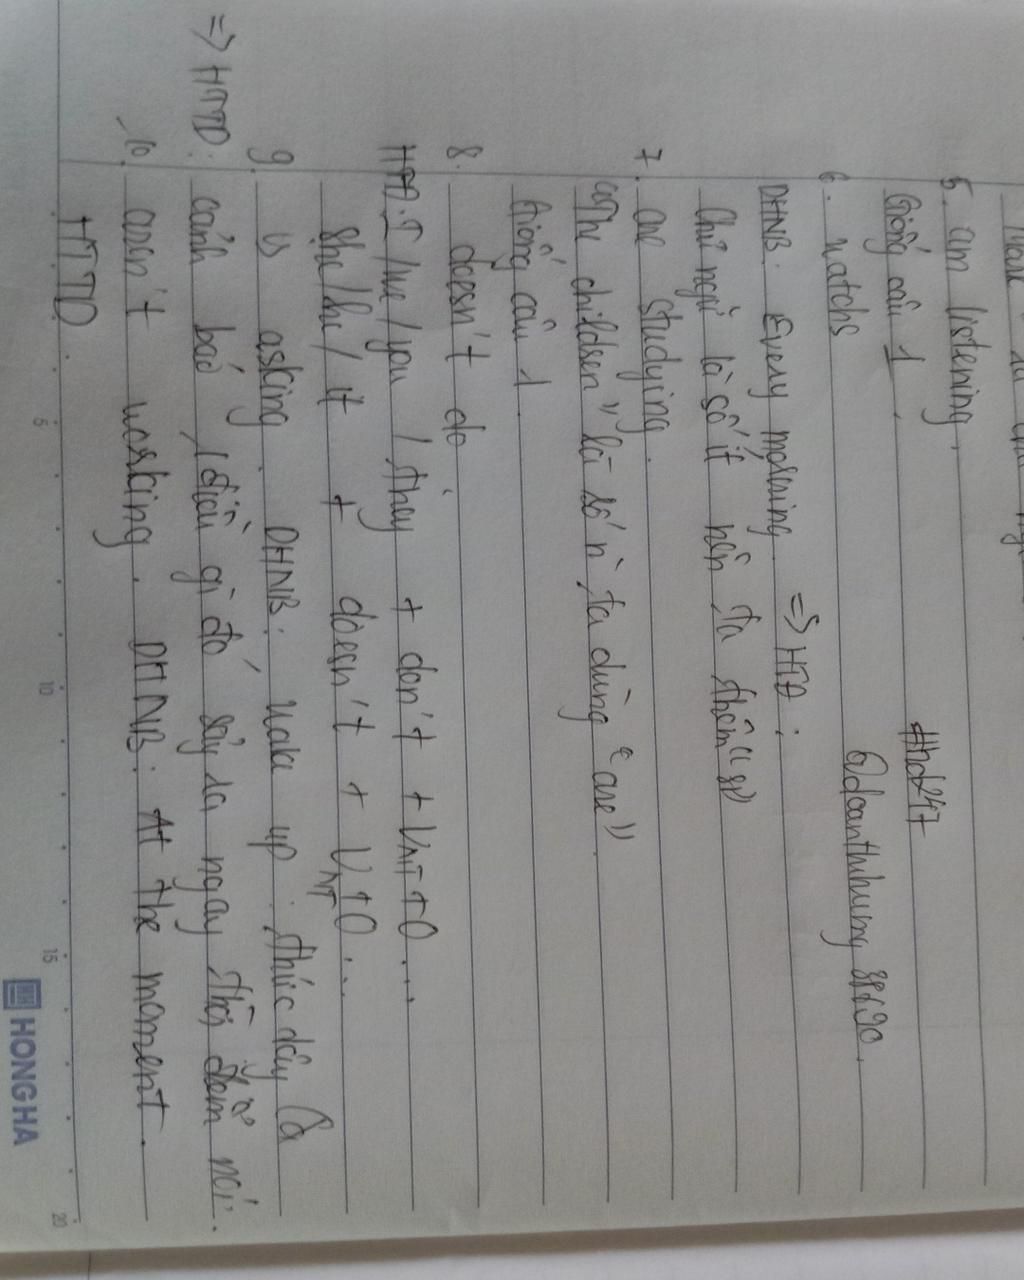 5. am listening.
Giống câu 1.
#hdt247
6. watchs
@doanthuhuong 38690.
DHNB: Every morning. => HTĐ.
Chủ ngữ là số ít nên ta thêm "s"
7. are studying.
"The children" là số n` ta dùng "are".
Giống câu 1.
8. doesn't do.
HTĐ. I /we / you / they + don't + V_NT + O...
She / he / it + doesn't + V_NT + O...
9. is asking. DHNB: wake up: thức dậy là
cảnh báo, điều gì đó sảy ra ngay thời điểm nói.
=> HTTD.
10. aren't working. DHNB: At the moment.
HTTD
5 10 15 20
HONG HA